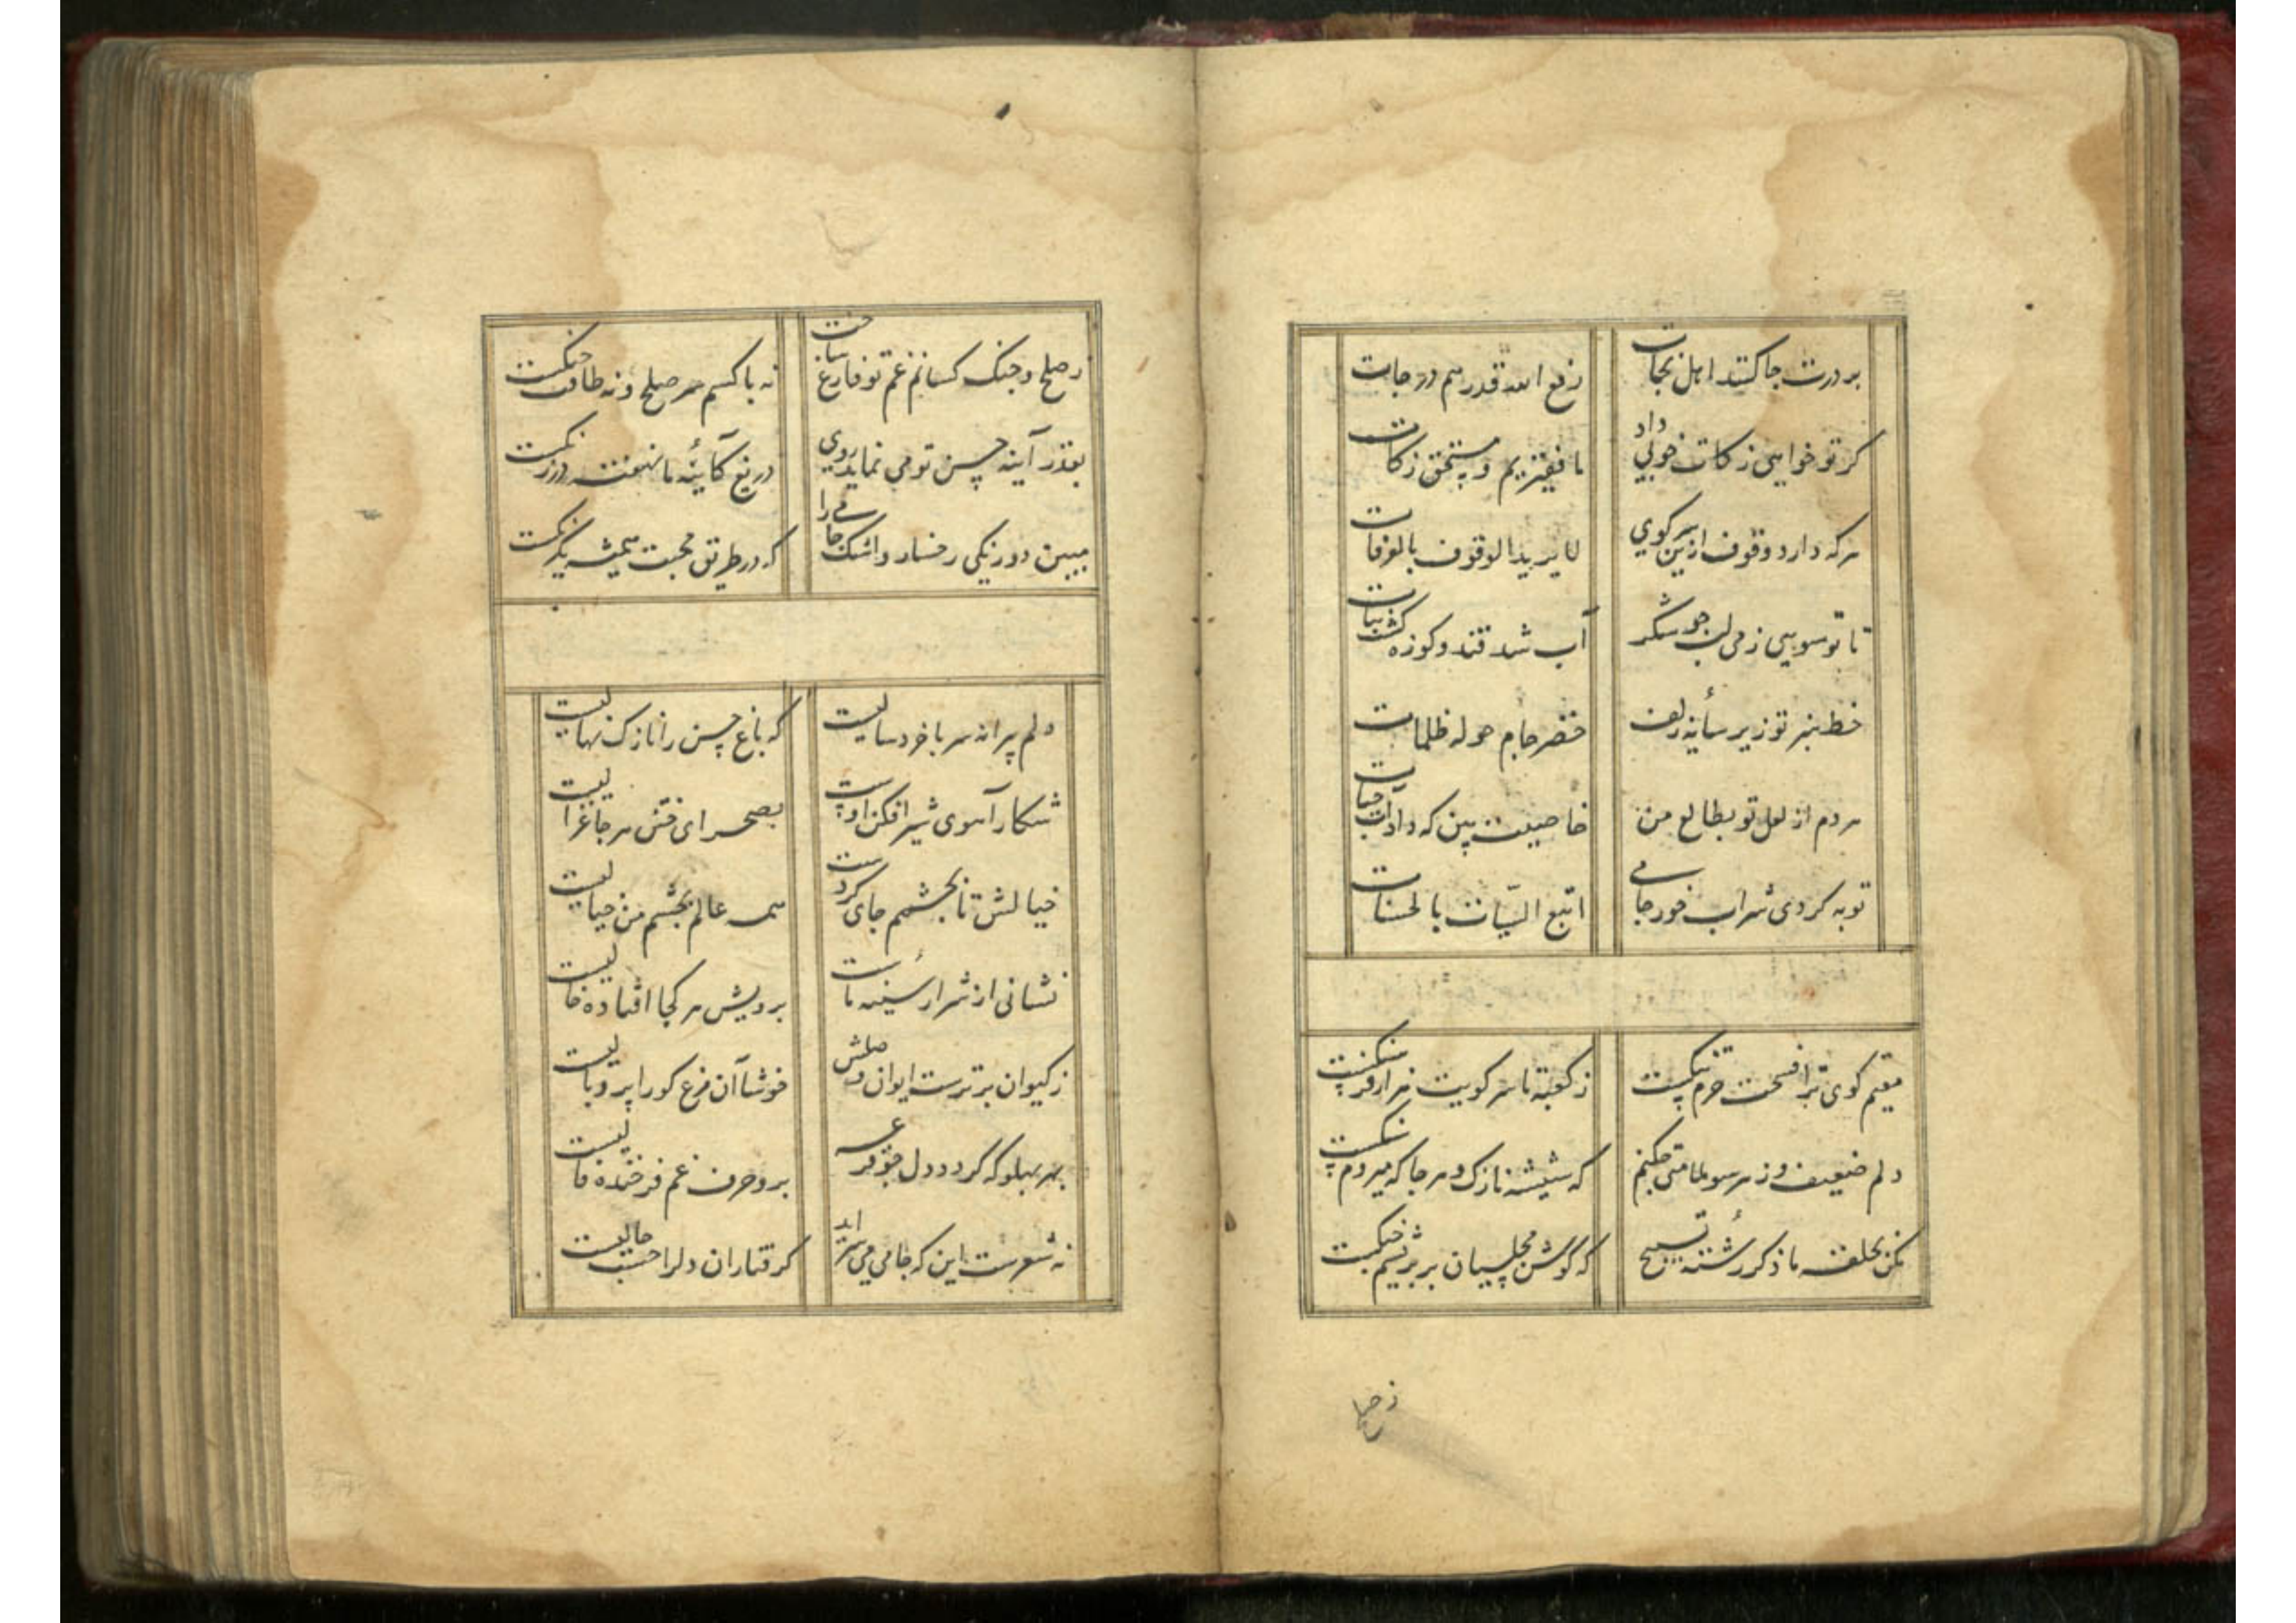 بر درت جا کنند اهل نجات رفع الله قدرهم درجات
کر تو خواهی زکات خوبی داد ما فقیریم و مستحق زکات
هر که دارد وقوف ازین سر کوی لا یرید الوقوف بالعرفات
تا تو سویی زمی لب چو شکر آب شد قند و کوزه کشت نبات
خط سبز تو زیر سایهٔ زلف خضر جام حوله ظلمات
هر دم از لعل تو بطالع من خاصیت بین که داد آب حیات
توبه کردی شراب خور جامی اتبع السیّات بالحسنات
مقیم کوی ترا فسحت حرم تنکست ز کعبه تا سر کویت هزار فرسنکست
دلم ضعیف و ز هر سو ملامتی چکنم که شیشه نازک و هر جا که میروم سنکست
مکن بحلقه ما ذکر رشتهٔ تسبیح که کوش مجلسیان بر بریشم چنکست
ز صلح
ز صلح و جنک کسانم غم تو فارغ ساخت نه با کسم سر صلح و نه طاقت جنکست
بقدر آینه حسن تو می نماید روی دریغ کآئینهٔ ما نهفته در زنکست
مبین دو رنکی رخسار و اشک جامی را که در طریق محبت همیشه یکرنکست
دلم پرانه سر با خرد سالیست که باغ حسن را نازک نهالیست
شکار آهوی شیر افکن اوست بصحرای ختن هر جا غزالیست
خیالش تا بچشمم جای کردست همه عالم بچشم من خیالیست
نشانی از شرار سینهٔ ماست برویش هر کجا افتاده خالیست
ز کیوان برترست ایوان وصلش خوشا آن مرغ کورا پر و بالیست
بهر پهلو که کردد دل چو قرعه برو حرف غم فرخنده فالیست
نه شعرست این که جامی می سراید کرفتاران دلرا حسب حالیست